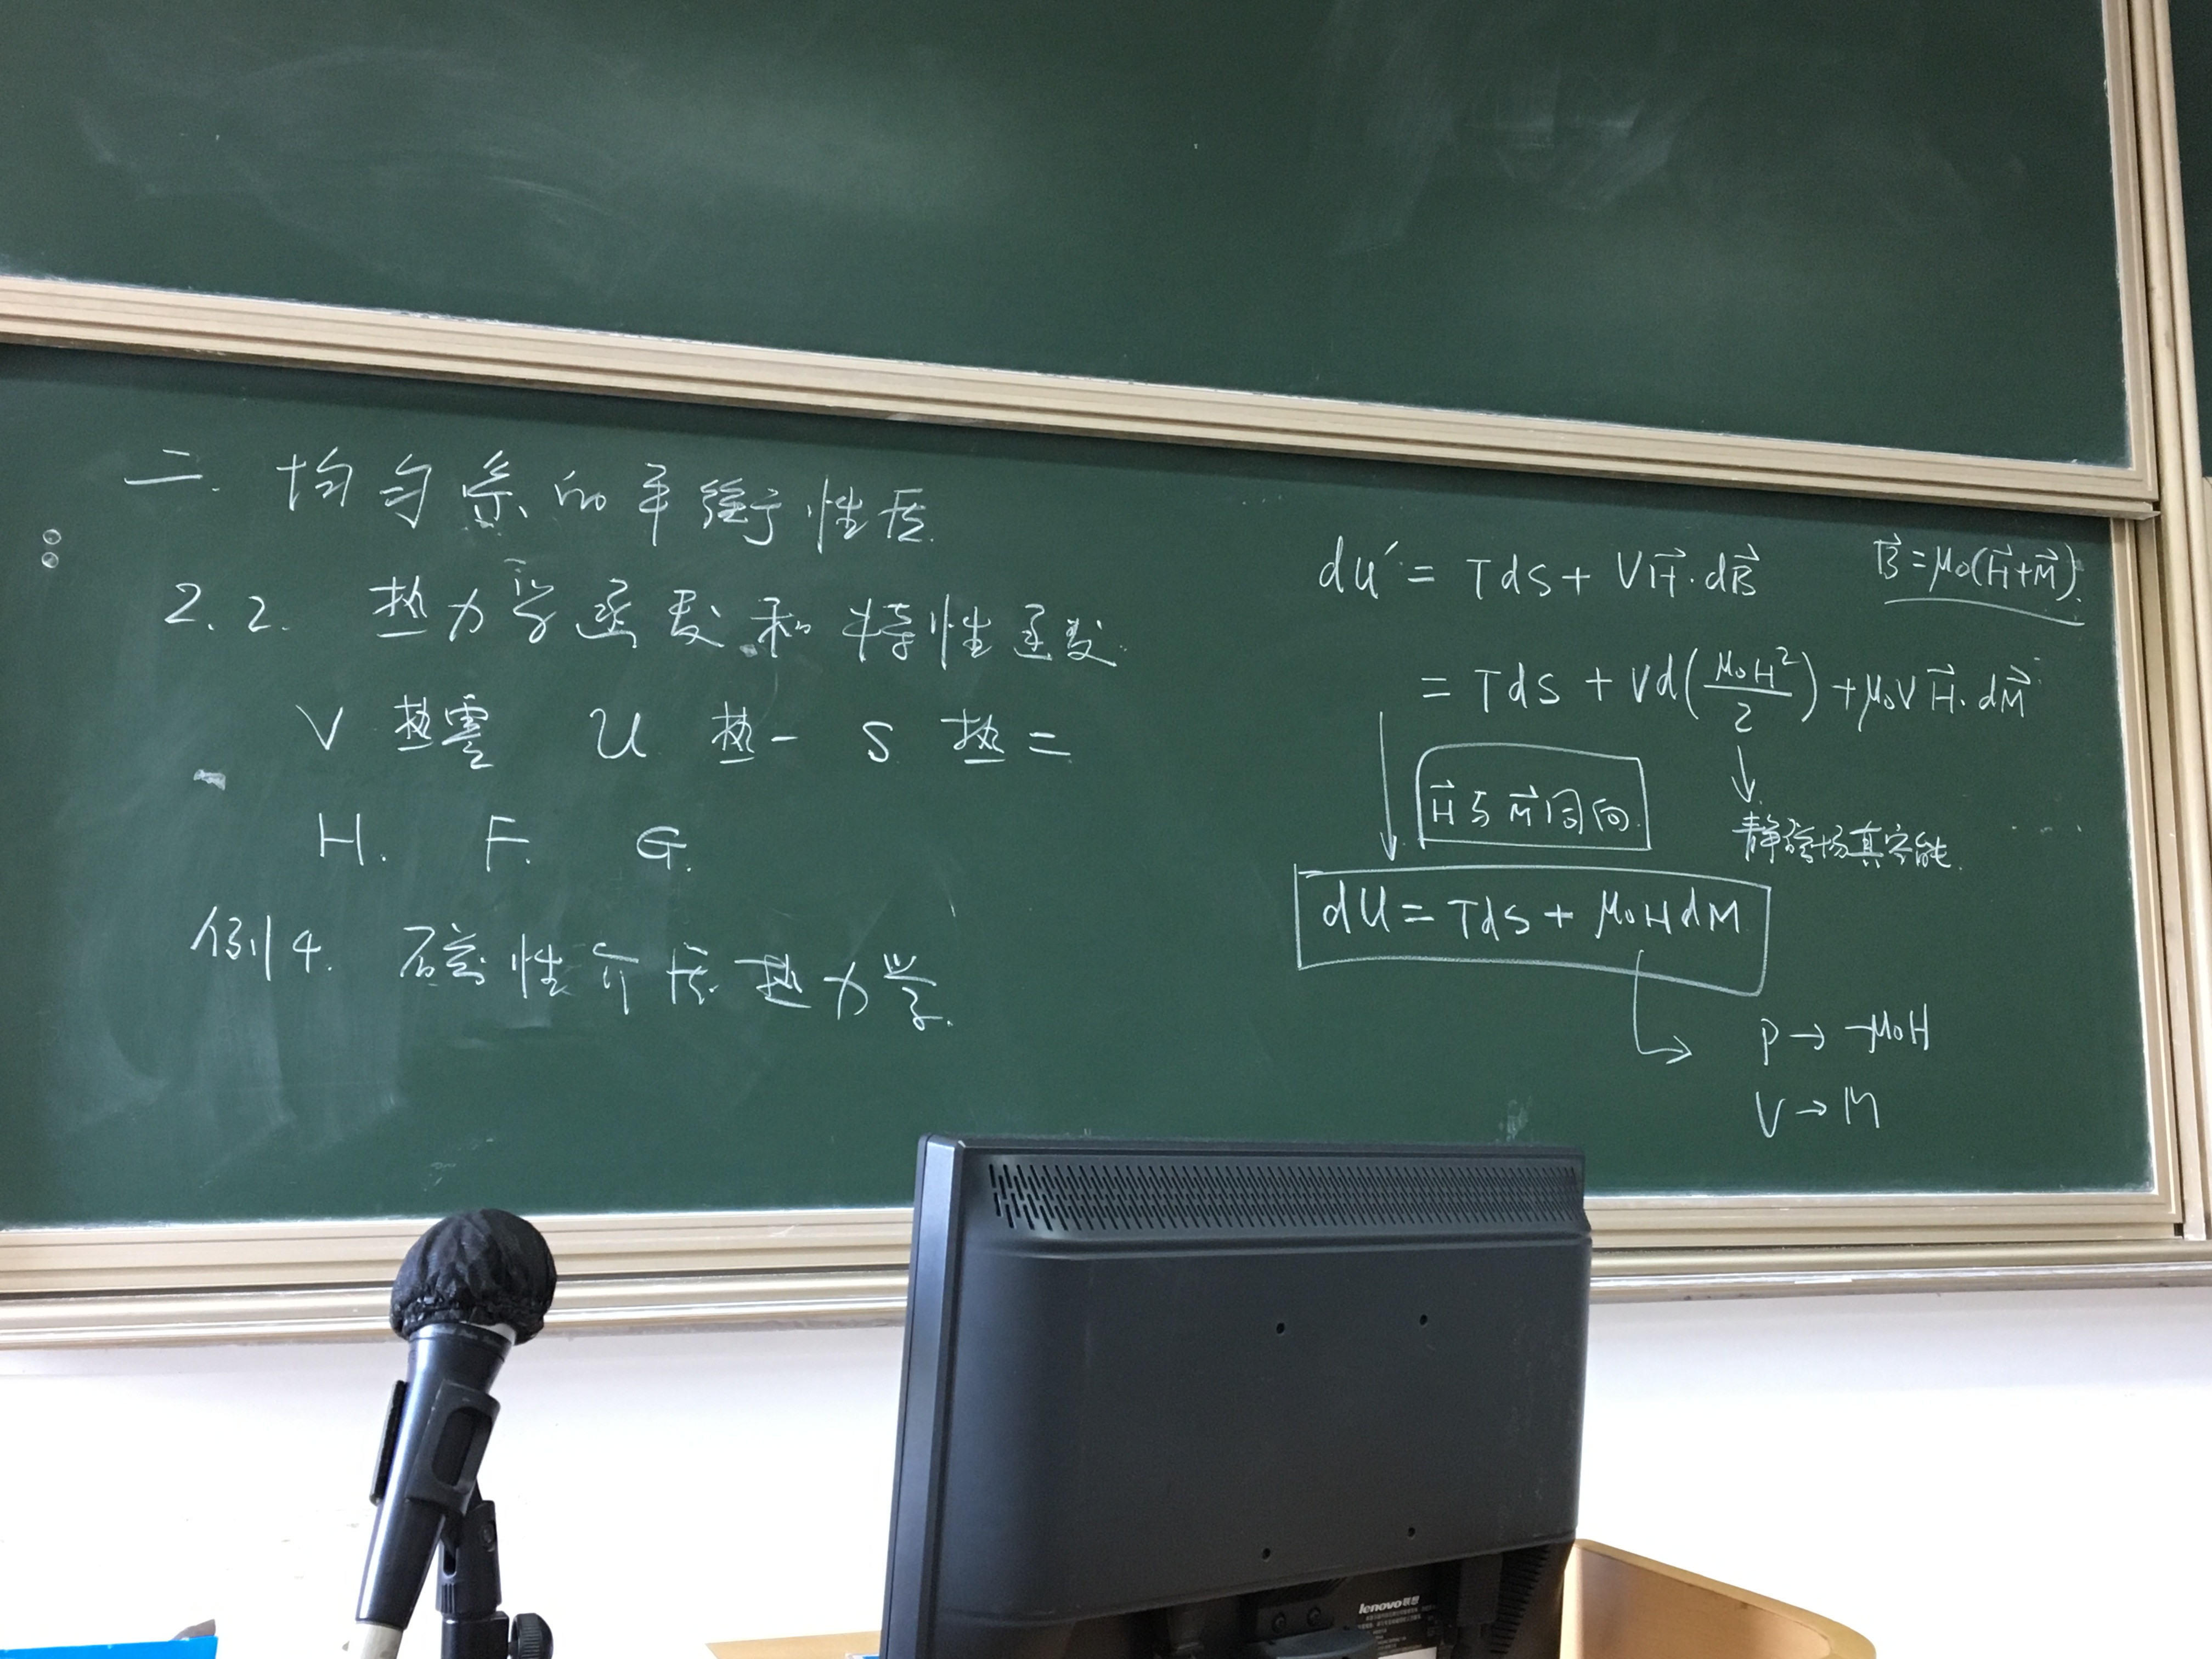 二. 均匀系的平衡性质.
2.2. 热力学函数和特性函数.
V 热零 U 热一 S 热二
H. F. G.
例4. 磁性介质热力学.
du' = TdS + VH⃗·dB⃗ B⃗=μ₀(H⃗+M⃗)
= TdS + Vd(μ₀H²/2) + μ₀V H⃗·dM⃗
↓ ↓
H⃗与M⃗同向.
静磁场真空能.
dU = TdS + μ₀HdM
p → -μ₀H
V → M
lenovo联想